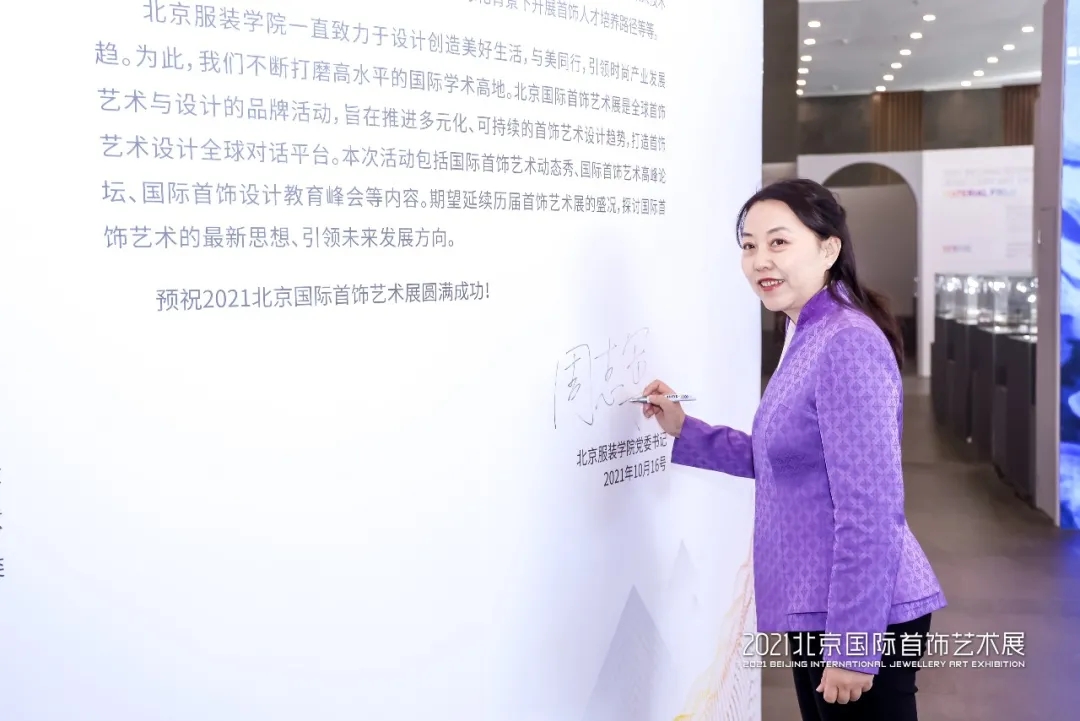 化背景下开展首饰人才培养路径等等。
北京服装学院一直致力于设计创造美好生活，与美同行，引领时尚产业发展
趋。为此，我们不断打磨高水平的国际学术高地。北京国际首饰艺术展是全球首饰
艺术与设计的品牌活动，旨在推进多元化、可持续的首饰艺术设计趋势，打造首饰
艺术设计全球对话平台。本次活动包括国际首饰艺术动态秀、国际首饰艺术高峰论
坛、国际首饰设计教育峰会等内容。期望延续历届首饰艺术展的盛况，探讨国际首
饰艺术的最新思想、引领未来发展方向。
预祝2021北京国际首饰艺术展圆满成功！
周志军
北京服装学院党委书记
2021年10月16号
2021北京国际首饰艺术展
2021 BEIJING INTERNATIONAL JEWELLERY ART EXHIBITION